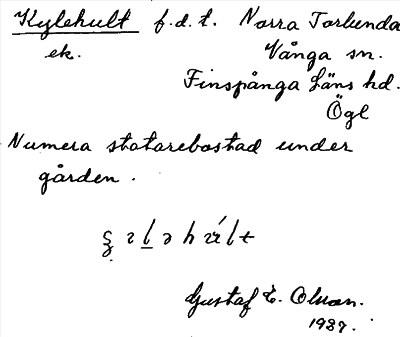 Kylehult f.d.t. Norra Torlunda
ek. Vånga sn.
Finspånga Läns hd.
Ögl
Numera statarebostad under
gården.
Gustaf E. Olsson.
1937.